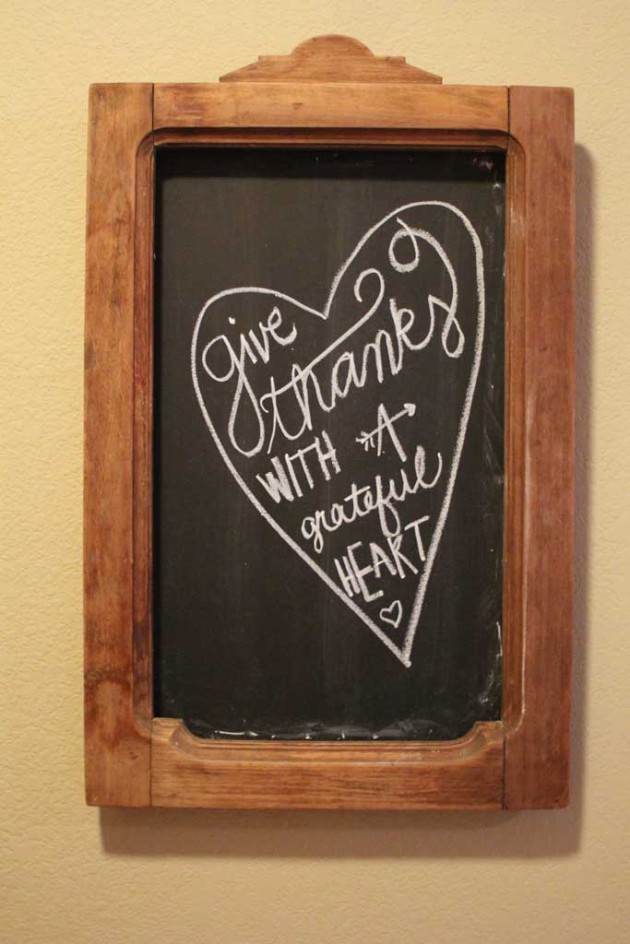 give
thanks
WITH A
grateful
HEART